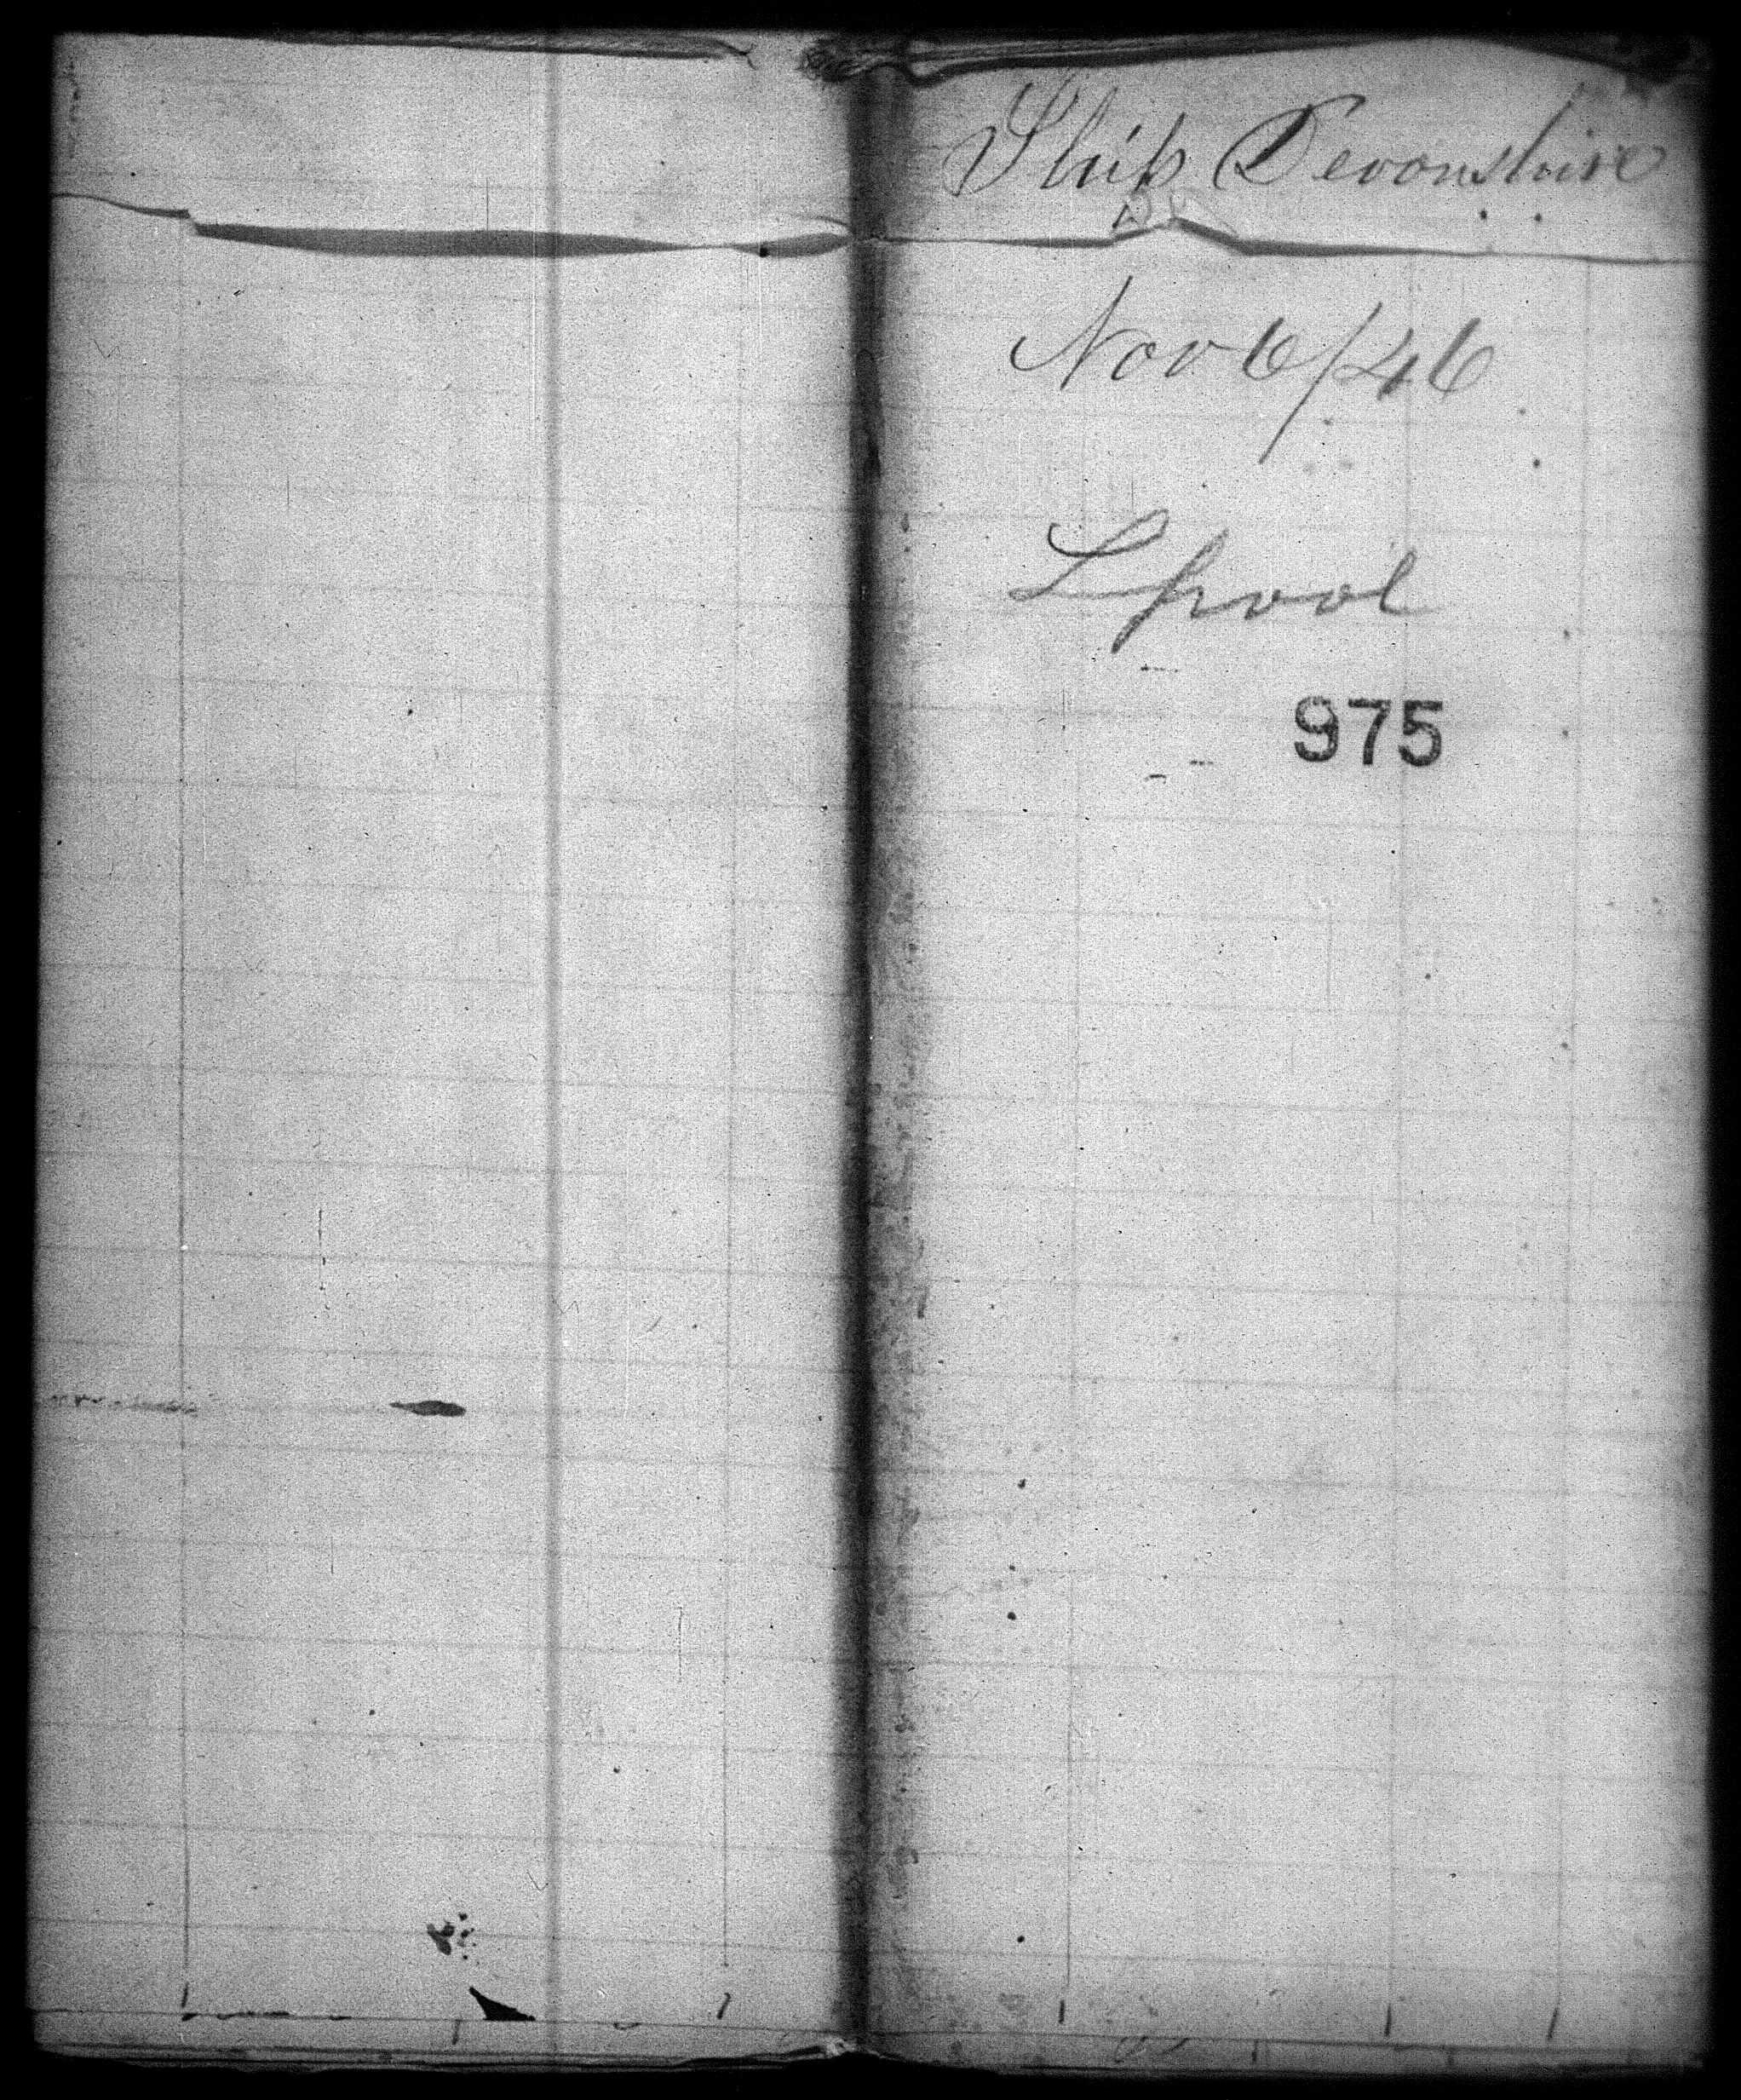 Ship Devonshire
Nov 6/46
Lpool
975